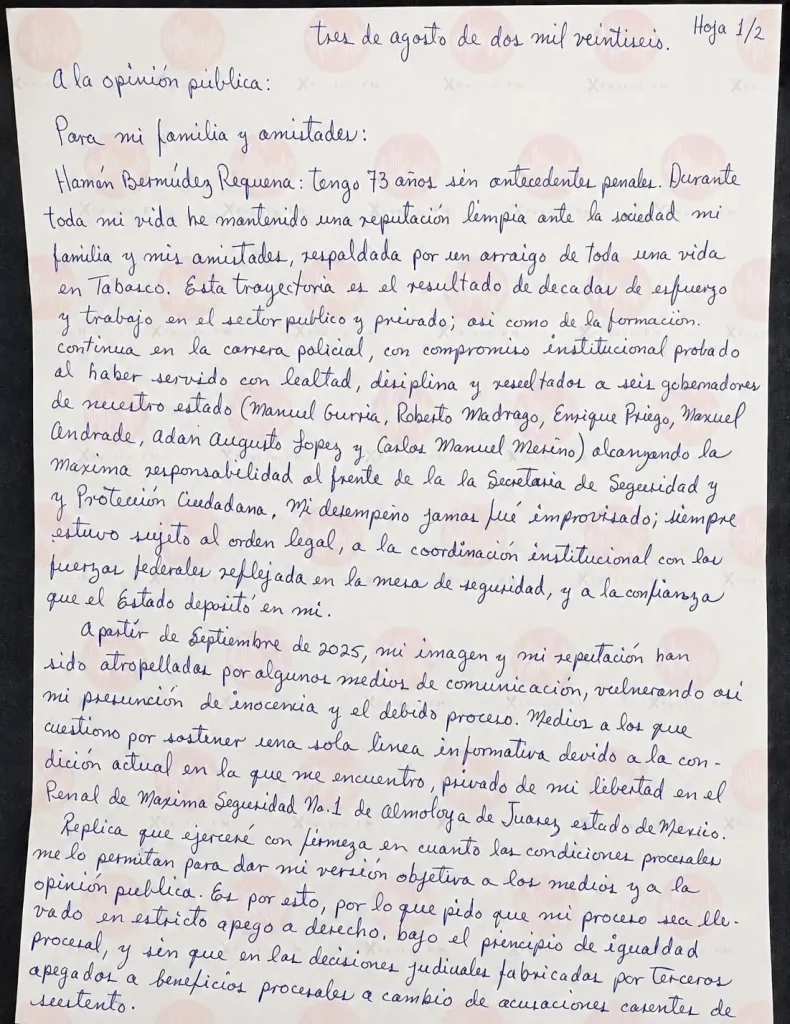 tres de agosto de dos mil veintiseis.
Hoja 1/2
A la opinión pública:
Para mi familia y amistades:
Hamán Bermúdez Requena: tengo 73 años sin antecedentes penales. Durante
toda mi vida he mantenido una reputación limpia ante la sociedad mi
familia y mis amistades, respaldada por un arraigo de toda una vida
en Tabasco. Esta trayectoria es el resultado de decadas de esfuerzo
y trabajo en el sector publico y privado; asi como de la formación.
continua en la carrera policial, con compromiso institucional probado
al haber servido con lealtad, disiplina y resultados a seis gobernadores
de nuestro estado (Manuel Gurria, Roberto Madrago, Enrique Priego, Manuel
Andrade, Adan Augusto Lopez y Carlos Manuel Merino) alcanzando la
Maxima responsabilidad al frente de la la Secretaria de Seguridad y
y Protección Ciudadana, Mi desempeño jamas fué improvisado; siempre
estuvo sujeto al orden legal, a la coordinación institucional con las
fuerzas federales reflejada en la mesa de seguridad, y a la confianza
que el Estado depositó en mi.
Apartir de Septiembre de 2025, mi imagen y mi reputación han
sido atropelladas por algunos medios de comunicación, vulnerando asi
mi presunción de inocencia y el debido proceso. Medios a los que
cuestiono por sostener una sola linea informativa devido a la con-
dición actual en la que me encuentro, privado de mi libertad en el
Penal de Maxima Seguridad No.1 de Almoloya de Juarez estado de Mexico.
Replica que ejerceré con firmeza en cuanto las condiciones procesales
me lo permitan para dar mi versión objetiva a los medios y a la
opinión publica. Es por esto, por lo que pido que mi proceso sea lle-
vado en estricto apego a derecho. bajo el principio de igualdad
procesal, y sin que en las decisiones judiciales fabricadas por terceros
apegados a beneficios procesales a cambio de acusaciones carentes de
sustento.